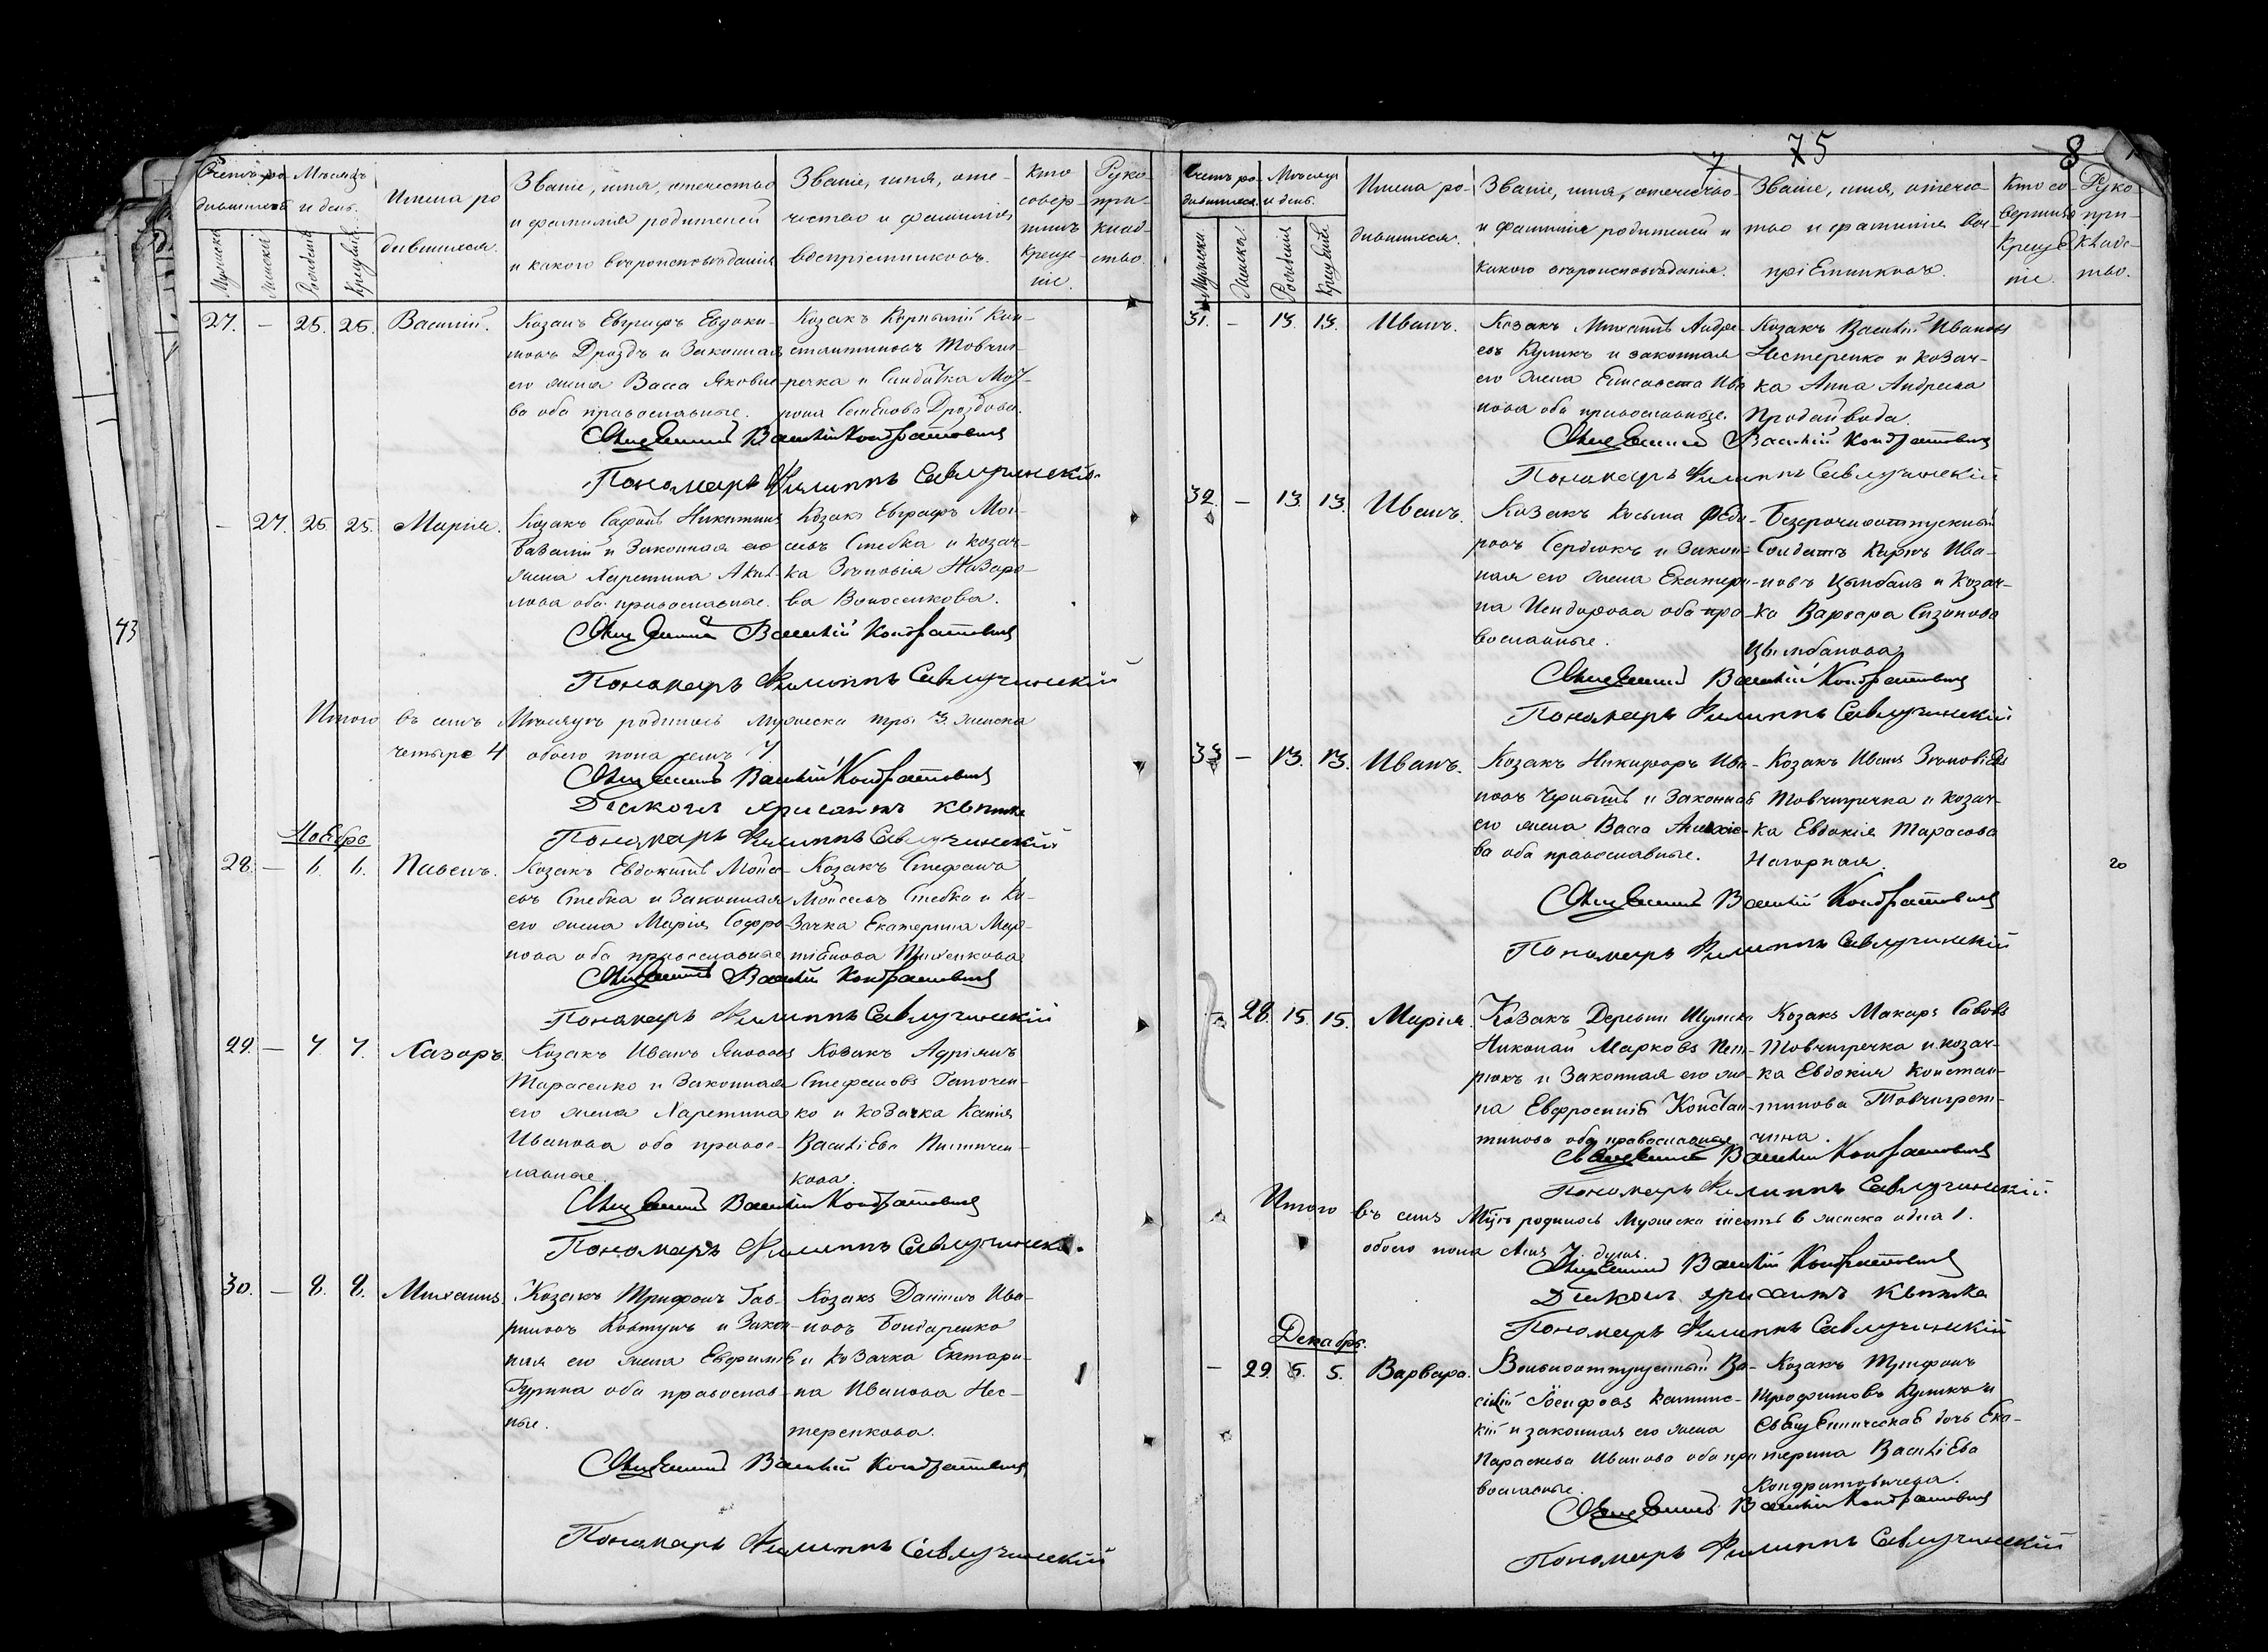 Счетъ ро- Мѣсяцъ
дившихся и день.
Мужеска
Женска
Рожденія
Крещенія
Имена ро
дившихся.
Званіе, имя, отечество
и фамилія родителей
и какого вѣроисповѣданія
Званіе, имя, оте-
чество и фамилія
воспріемниковъ.
Кто
совер-
шилъ
креще-
ніе.
Руко
при-
клад-
ство.
27. — 25. 25. Василій.
Козакъ Евграфъ Евдоки-
мовъ Дроздъ и Законная
его жена Васса Яковле-
ва оба православные.
Козакъ Корнилій Кон-
стантиновъ Товчиг-
речка и Солдатка Мот-
рона Семенова Дроздова.
Священникъ Василій Кондратовичъ
Пономарь Филиппъ Савлучинскій
— 27. 25 25. Марія.
Козакъ Никитинъ
и Законная его
жена Харитина
лова оба православные.
Козакъ Евграфъ Мои-
сеевъ Стебка и козач-
ка Зѣновія Назаро-
ва Волосенкова.
Священникъ Василій Кондратовичъ
Пономарь Филиппъ Савлучинскій
Итого въ семъ Мѣсяцѣ родилось мужеска три 3. женска
четыре 4 обоего пола семь 7
Священникъ Василій Кондратовичъ
Діаконъ Хрисанфъ Квитка
Пономарь Филиппъ Савлучинскій
Ноябрь
28. — 6. 6. Павелъ.
Козакъ Евдокимъ Мойсе-
евъ Стебка и Законная
его жена Марія Софро-
нова оба православные
Козакъ Стефанъ
Мойсеевъ Стебка и Ко-
зачка Екатерина Мар-
Священникъ Василій Кондратовичъ
Пономарь Филиппъ Савлучинскій
29. — 7 7. Лазарь.
Козакъ Иванъ
Тарасенко и Законная
его жена Харитина
Иванова оба правос-
лавные.
Козакъ Адріянъ
Стефановъ Гапочен-
ко и козачка
Василіева
кова.
Священникъ Василій Кондратовичъ
Пономарь Филиппъ Савлучинскій
30. — 8. 8. Михаилъ.
Козакъ Трифонъ Гав-
риловъ Ковтунъ и Закон-
ная его жена Евфимія
Гурина оба православ-
ные.
Козакъ Даніилъ Ива-
новъ Бондаренко
и козачка Екатери-
на Иванова Нес-
теренкова.
Священникъ Василій Кондратовичъ
Пономарь Филиппъ Савлучинскій
43
7 75 8
Счетъ ро- Мѣсяцъ
дившихся и день.
Мужеска
Женска.
Рожденія
Крещенія
Имена ро-
дившихся.
Званіе, имя, отечество
и фамилія родителей и
какого вѣроисповѣданія.
Званіе, имя, отечес-
тво и фамилія вос-
пріемниковъ.
Кто со
вершилъ
креще
ніе.
Руко
при-
кладс-
тво.
31. — 13. 13. Иванъ.
Козакъ Михаилъ Андре-
евъ Куликъ и законная
его жена Елисавета Ива
нова оба православные.
Козакъ Василій Ивановъ
Нестеренко и козач-
ка Анна Андреева
Продайвода.
Священникъ Василій Кондратовичъ
Пономарь Филиппъ Савлучинскій
32. — 13. 13. Иванъ.
Козакъ Косьма Федо-
ровъ Сердюкъ и Закон-
ная его жена Екатери-
на Исидорова оба пра-
вославные.
Безсрочноотпускный
Солдатъ Карпъ Ива-
новъ Цымбалъ и Козач-
ка Варвара Сизонова
Цымбалова
Священникъ Василій Кондратовичъ
Пономарь Филиппъ Савлучинскій
33 — 13. 13. Иванъ.
Козакъ Никифоръ Ива-
новъ и Законная
его жена Васса
ва оба православные.
Козакъ Иванъ Зѣновіевъ
Товчигречка и козач-
ка Евдокія Тарасова
Нагорная.
Священникъ Василій Кондратовичъ
Пономарь Филиппъ Савлучинскій
20
— 28. 15. 15. Марія.
Козакъ Деревни
Николай Марковъ Пет-
рикъ и Законная его же-
на Евфросинія Констан-
тинова оба православные.
Козакъ Макаръ Савовъ
Товчигречка и козач-
ка Евдокія Констан-
тинова Товчигреч-
чина.
Священникъ Василій Кондратовичъ
Пономарь Филиппъ Савлучинскій
Итого въ семъ М-цѣ родилось Мужеска шесть 6 женска одна 1.
обоего пола семь 7. душъ.
Священникъ Василій Кондратовичъ
Діаконъ Хрисанфъ Квитка
Пономарь Филиппъ Савлучинскій
Декабрь.
— 29. 5. 5. Варвара.
Вольноотпущенный Ва-
силій Іосифовъ Калинс-
кій и законная его жена
Параскева Иванова оба пра
вославные.
Козакъ Трифонъ
Трофимовъ Куликъ и
Священническая дочь Ека-
терина Василіева
Кондратовичева.
Священникъ Василій Кондратовичъ
Пономарь Филиппъ Савлучинскій